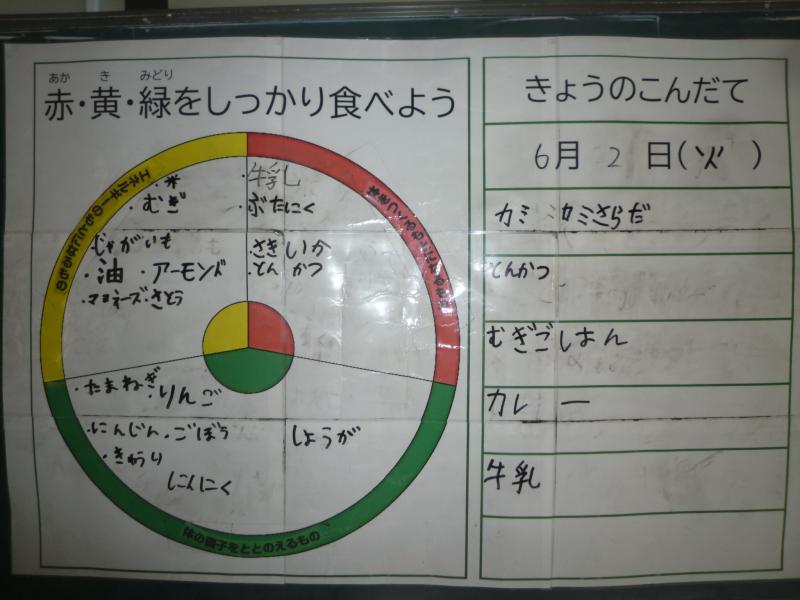 あか き みどり
赤・黄・緑をしっかり食べよう
エネルギーのもとになるもの
・米
・むぎ
じゃがいも
・油 ・アーモンド
・マヨネーズ・さとう
体をつくるもとになるもの
・牛乳
・ぶたにく
・さきいか
・とんかつ
・たまねぎ・りんご
・にんじん・ごぼう
・きゅうり
にんにく
しょうが
体の調子をととのえるもの
きょうのこんだて
6月 2 日(火 )
カミカミさらだ
とんかつ
むぎごはん
カレー
牛乳